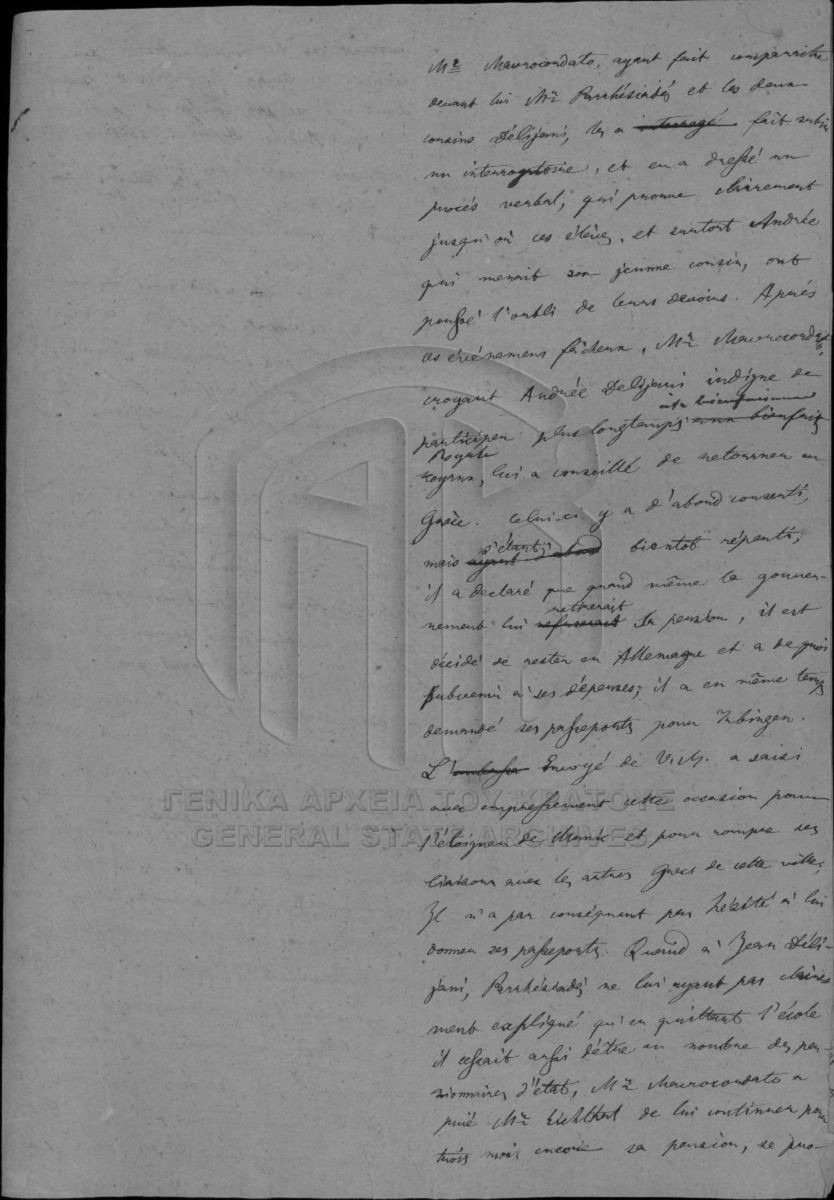 Mr Mavrocordato, ayant fait comparaitre
devant lui Mr Parrhésiadés et les deux
cousins Délijani, les a interrogé fait subir
un interrogatoire, et en a dressé un
procés verbal, qui prouve clairement
jusqu'où ces élèves, et surtout Andrée
qui menait son jeunne cousin, ont
poussé l'oubli de leurs devoirs. Aprés
ces événemens fâcheux, Mr Mavrocordato,
croyant Andrée Delijani indigne de
participer plus longtemps à la bienfaisance aux bienfaits
Royale
, lui a conseillé de retourner en
Grèce. Celui-ci y a d'abord consenti,
mais s'étant bientot répenti,
il a declaré que quand même le gouver-
nement lui refuserait retirerait sa pension, il est
décidé de rester en Allemagne et a de quoi
subvenir à ses dépenses; il a en même temps
demandé ses passeports pour Tubingen.
L' Envoyé de V.M. a saisi
avec empressement cette occasion pour
l'éloigner de Munic et pour rompre ses
liaisons avec les autres Grecs de cette ville;
Il n'a par conséquent pas hésité à lui
donner ses passeports. Quand à Jean Déli-
jani, Parrhésiadés ne lui ayant pas claire
ment expliqué qu'en quittant l'école
il cessait aussi d'être au nombre des pen-
sionnaires d'état, Mr Mavrocordato a
prié Mr de lui continuer pour
trois mois encore sa pension, se pro-
ΓΕΝΙΚΑ ΑΡΧΕΙΑ ΤΟΥ ΚΡΑΤΟΥΣ
GENERAL STATE ARCHIVES